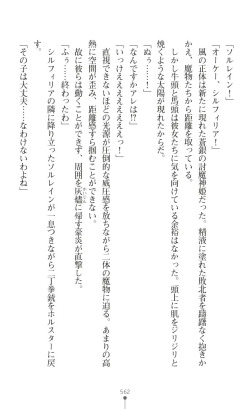 「ソルレイン！」
「オーケー、シルフィリア！」
風の正体は新たに現れた蒼銀の討魔神姫だった。精液に塗れた敗北者を躊躇なく抱きか
かえ、魔物たちから距離を取っている。
しかし牛頭と馬頭は彼女たちに気を向けている余裕はなかった。頭上に肌をジリジリと
焼くような太陽が現れたからだ。
「ぬぅ……！」
「なんですかアレは!?」
「いっけええええええぇっ！」
直視できないほどの光源が圧倒的な威圧感を放ちながら二体の魔物に迫る。あまりの高
熱に空間が歪み、距離感すら掴むことができない。
故に彼らは動くことができず、周囲を灰燼に帰す豪炎が直撃した。
かいじん
「ふぅ……終わったわ」
シルフィリアの隣に降り立ったソルレインが一息つきながら二丁拳銃をホルスターに戻
す。
「その子は大丈夫……なわけないわよね」
562